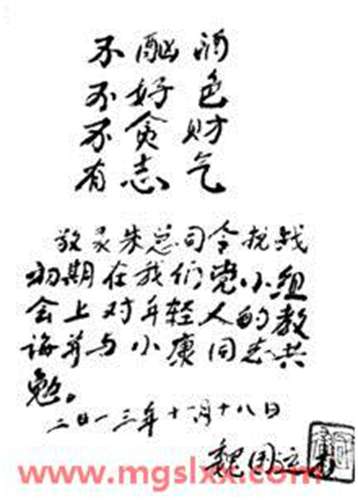 不酗酒
不好色
不贪财
有志气
敬录朱总司令抗战
初期在我们党小组
会上对年轻人的教
诲并与小康同志共
勉。
二〇一三年十一月十八日
魏国运
www.mgslxx.com